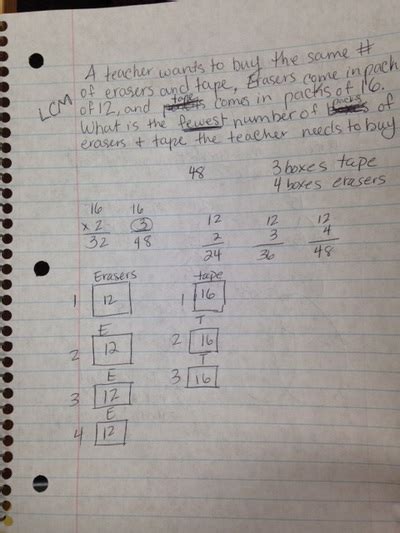 A teacher wants to buy the same #
of erasers and tape, Erasers come in pack
LCM
of 12, and tape comes in packs of 16.
What is the fewest number of packs of
erasers + tape the teacher needs to buy
48
3 boxes tape
4 boxes erasers
16 16 12 12 12
x 2 3 2 3 4
32 48 24 36 48
Erasers tape
1 12 1 16
E T
2 12 2 16
E T
3 12 3 16
E
4 12